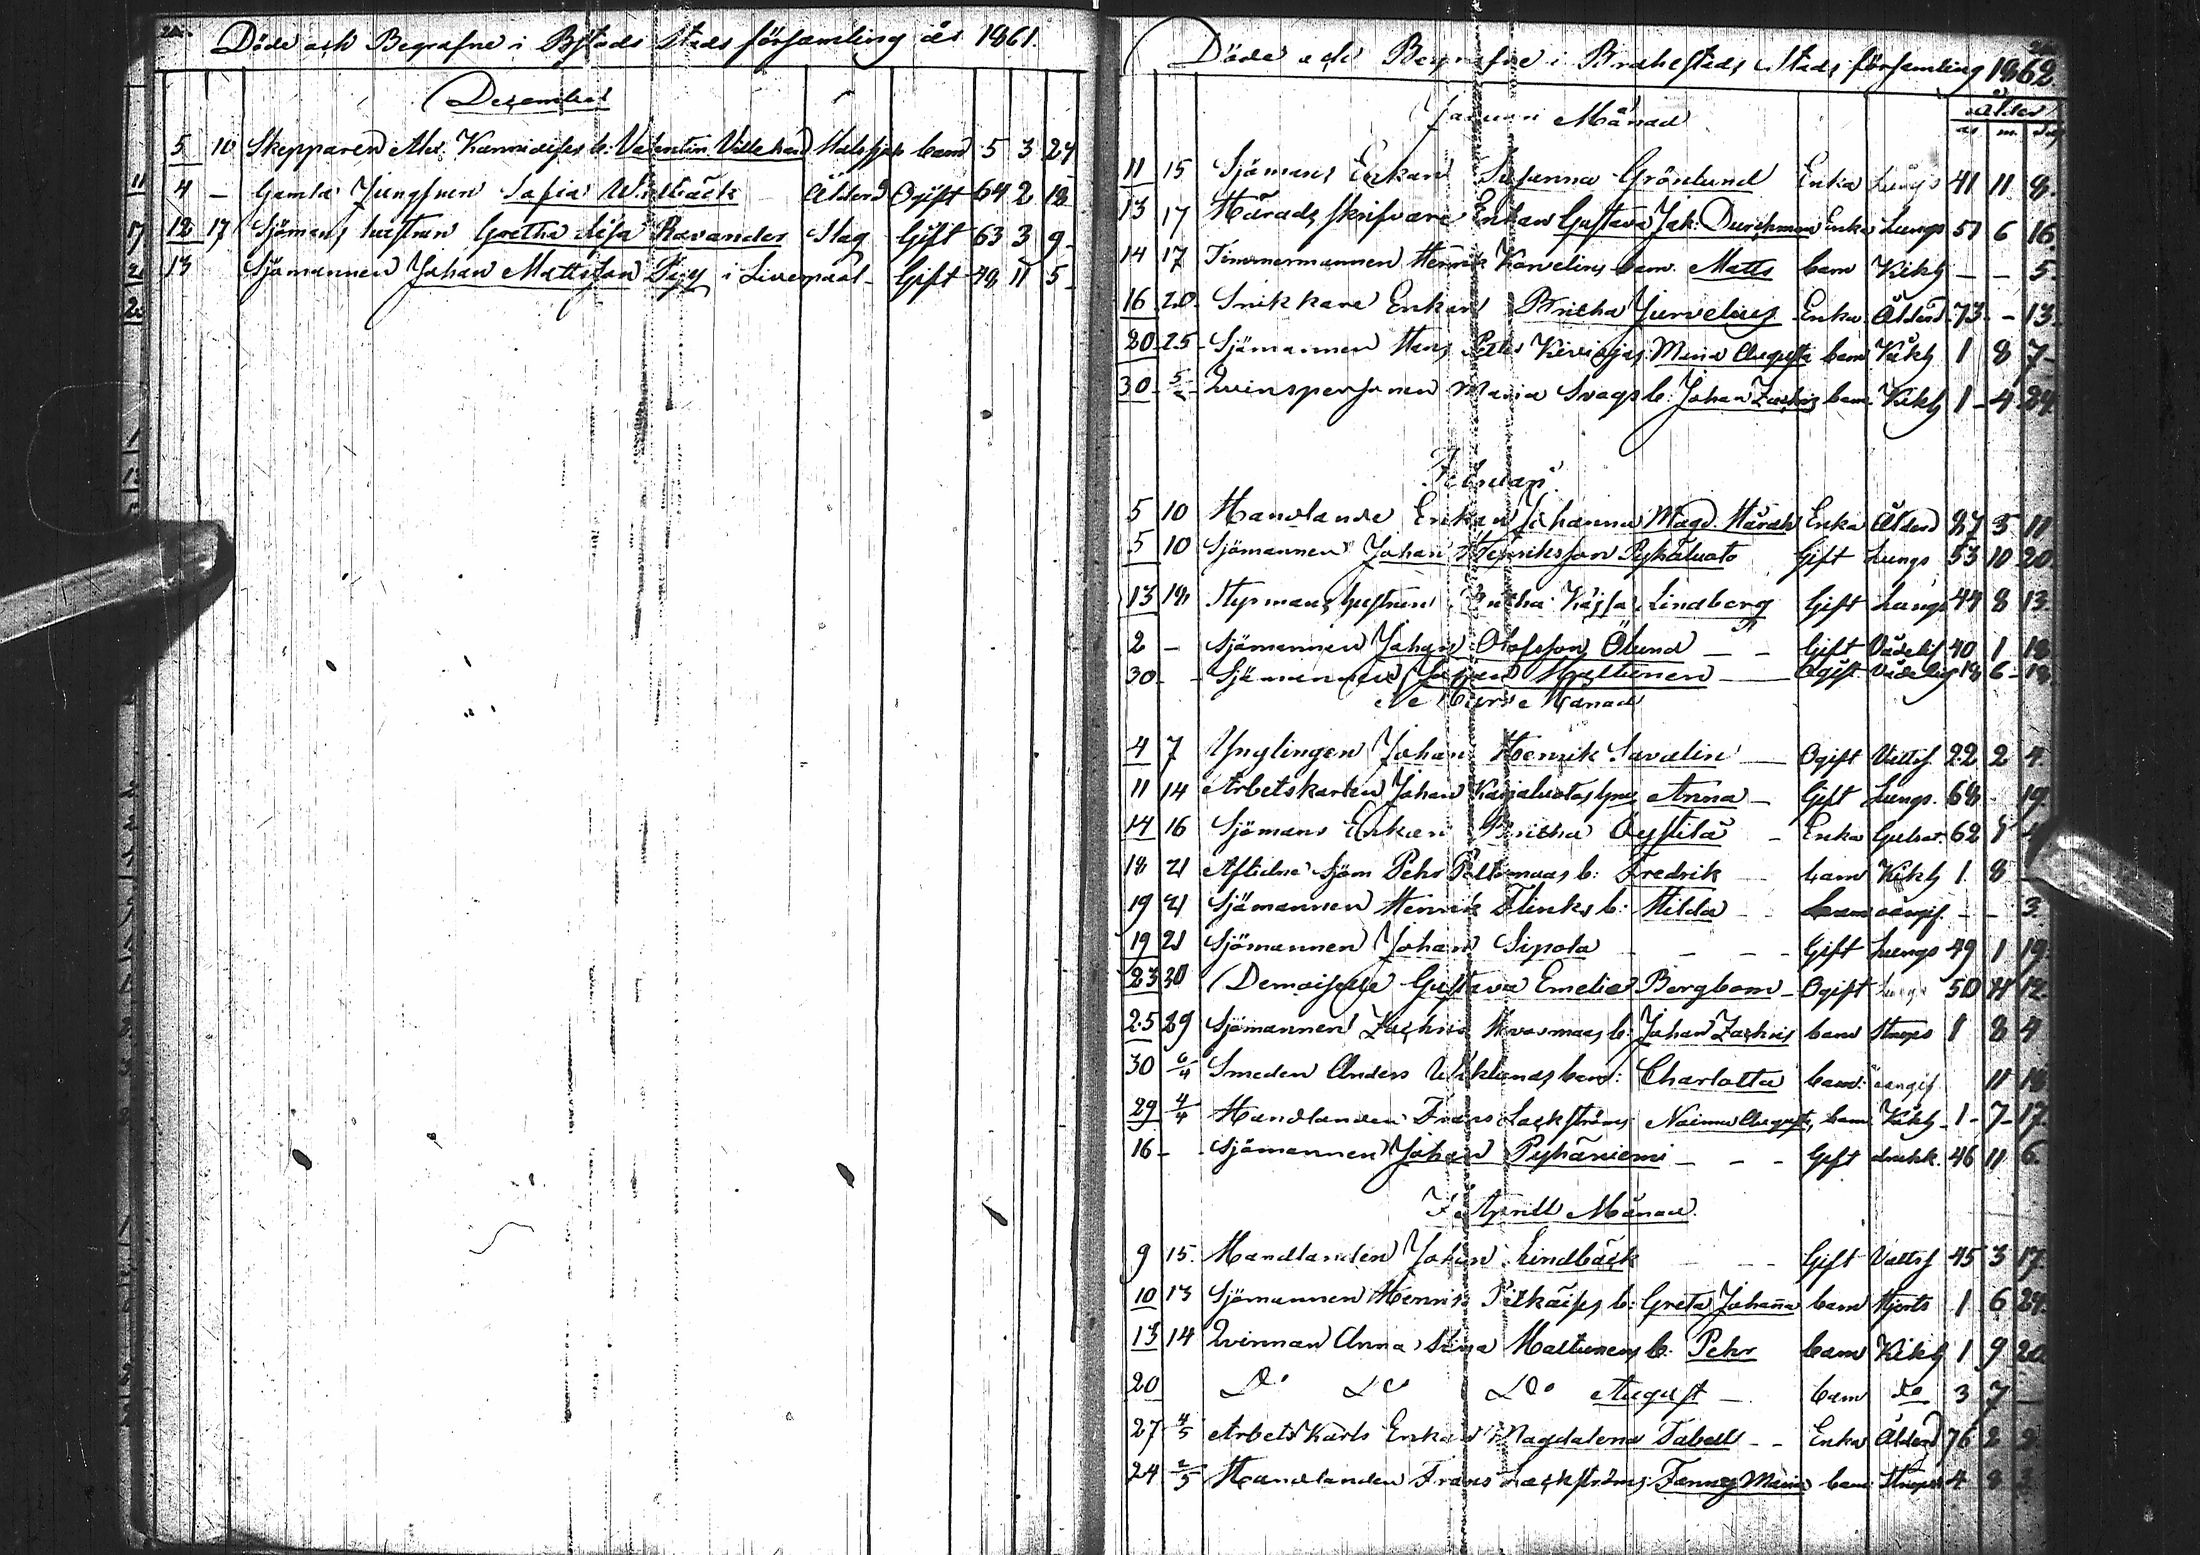 Döde och Begrafne i Bstads Stads församling år 1861.
December
5 10 Skepparen Alex. b: Valentin barn 5 3 24
4 - Gamla Jungfrun Sofia Widbäck Ålderd Ogift 64 2 18
12 17 Sjömans hustrun Gretha Lisa Ravander Slag Gift 63 3 9
13 Sjömannen Johan Mattsson i Liverpool Gift 48 11 5
Döde och Begrafne i Brahestads Stads församling 1862
ålder
år m. dag
Januari Månad
11 15 Sjömans Enkan Susanna Grönlund Enka Lungs 41 11 8
13 17 Härads skrifvare Enkan Gustava Jak. Durchman Enka Lungs 51 6 16
14 17 Timmermannen Henrik Karvelins barn Matts barn Kikh - - 5
16 20 Snikkare Enkan Britha Jurvelius Enka Ålderd 73 - 13
20 25 Sjömannen Hans Petter Maria Augusta barn Kikh 1 8 7
30 5/2 Qvinspersonen Maria Svags b: Johan Zachris barn Kikh 1 4 24
Februari
5 10 Handlande Enkan Johanna Magd. Enka Ålderd 87 5 11
5 10 Sjömannen Johan Henriksson Pyhäluoto Gift Lungs 53 10 20
13 18 Styrmans hustrun Britha Kajsa Lindberg Gift Lungs 44 8 13
2 - Sjömannen Johan Olofsson Ölund - - Gift Vådelig 40 1 18
30 - Sjömannen Johan Maltunen Ogift Vådelig 18 6 18
Mars Månad
4 7 Ynglingen Johan Henrik Savalin Ogift Vatts. 22 2 4
11 14 Arbetskarlen Johan Karjaluotos hus Anna Gift Lungs. 68 19
14 16 Sjömans Enkan Britha Öystilä - Enka 62
18 21 Aflidne Sjöm Pehr Peltomaas b: Fredrik barn Kikh 1 8
19 21 Sjömannen Henrik Flinks b: Hilda barn oangif. - - 3
19 21 Sjömannen Johan Sipola - - - Gift Lungs 49 1 19
23 30 Demoiselle Gustava Emelia Bergbom Ogift Lungs 50 11 12
25 29 Sjömannen Zachris b: Johan Zachris barn Strups 1 8 4
30 6/4 Smeden Anders Wiklunds barn: Charlotta barn oangif 11 18
29 4/4 Handlanden Frans Lackströms Naima Augusta, barn Kikh 1 7 17
16 - Sjömannen Johan Pyhäniemi - - - Gift drukk. 46 11 6
I Aprill Månad
9 15 Handlanden Johan Lindbäck - - Gift Vatts 45 3 17
10 13 Sjömannen Henrik b: Greta Johanna barn Hjerts 1 6 24
13 14 Qvinnan Anna Stina Maltunens b: Pehr barn Kikh 1 9 20
20 Do Do Do August barn do 3 7 -
27 4/5 Arbets Karls Enkan Magdalena Tabell - - Enka Ålderd 76 2 2
24 2/5 Handlanden Frans Lackströms Fanny Maria barn Strups 4 8